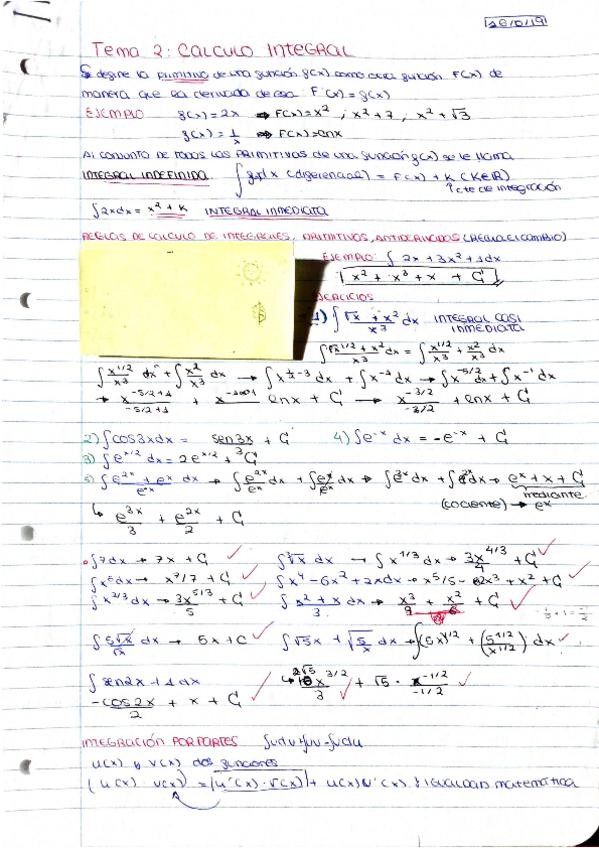 Tema 2: CALCULO INTEGRAL
Se define la primitiva de una función f(x) como otra función F(x) de
manera que la derivada de esa F'(x) = f(x)
EJEMPLO f(x) = 2x ⇒ F(x) = x², x² + 7, x² + √3
f(x) = 1/x ⇒ F(x) = lnx
Al conjunto de todas las PRIMITIVAS de una función f(x) se le llama
INTEGRAL INDEFINIDA. ∫f(x)dx (diferencial) = F(x) + K (K∈R)
↑cte de integración
∫2xdx = x² + K INTEGRAL INMEDIATA
REGLAS DE CALCULO DE INTEGRALES, PRIMITIVAS, ANTIDERIVADAS
EJEMPLO: ∫ 2x + 3x² + 1dx
x² + x³ + x + C
EJERCICIOS
1) ∫ √x + x²/x³ dx INTEGRAL CASI
INMEDIATA
∫ x^1/2 + x²/x³ dx = ∫ x^1/2/x³ + x²/x³ dx
∫ x^1/2/x³ dx + ∫ x²/x³ dx → ∫x^1/2-3 dx + ∫x^-1 dx → ∫x^-5/2 dx + ∫x^-1 dx
→ x^-5/2+1/-5/2+1 + lnx + C → x^-3/2/-3/2 + lnx + C
2) ∫cos3xdx = sen3x/3 + C 4) ∫e^-x dx = -e^-x + C
3) ∫e^x/2 dx = 2e^x/2 + C
5) ∫ e^2x + e^x/e^x dx → ∫ e^2x/e^x dx + ∫ e^x/e^x dx → e^x + x + C
(cociente) → mediante e^x
↳ e^3x/3 + e^2x/2 + C
∫7dx → 7x + C ∫∛x dx → ∫x^1/3 dx → 3x^4/3/4 + C
∫x⁶dx → x⁷/7 + C ∫x⁴ - 6x² + 2xdx → x⁵/5 - 2x³ + x² + C
∫x^2/3 dx → 3x^5/3/5 + C ∫ x² + x/3 dx → x³/9 + x²/6 + C
∫ 5√x/√x dx → 5x + C ∫√5x + √5/x dx → ∫(5x)^1/2 + (5^1/2/x^1/2) dx
∫sen2x + 1 dx
-cos2x/2 + x + C
INTEGRACIÓN POR PARTES
u(x) y v(x) dos funciones
(u(x) · v(x))' = u'(x) · v(x) + u(x) v'(x) } igualdad matemática